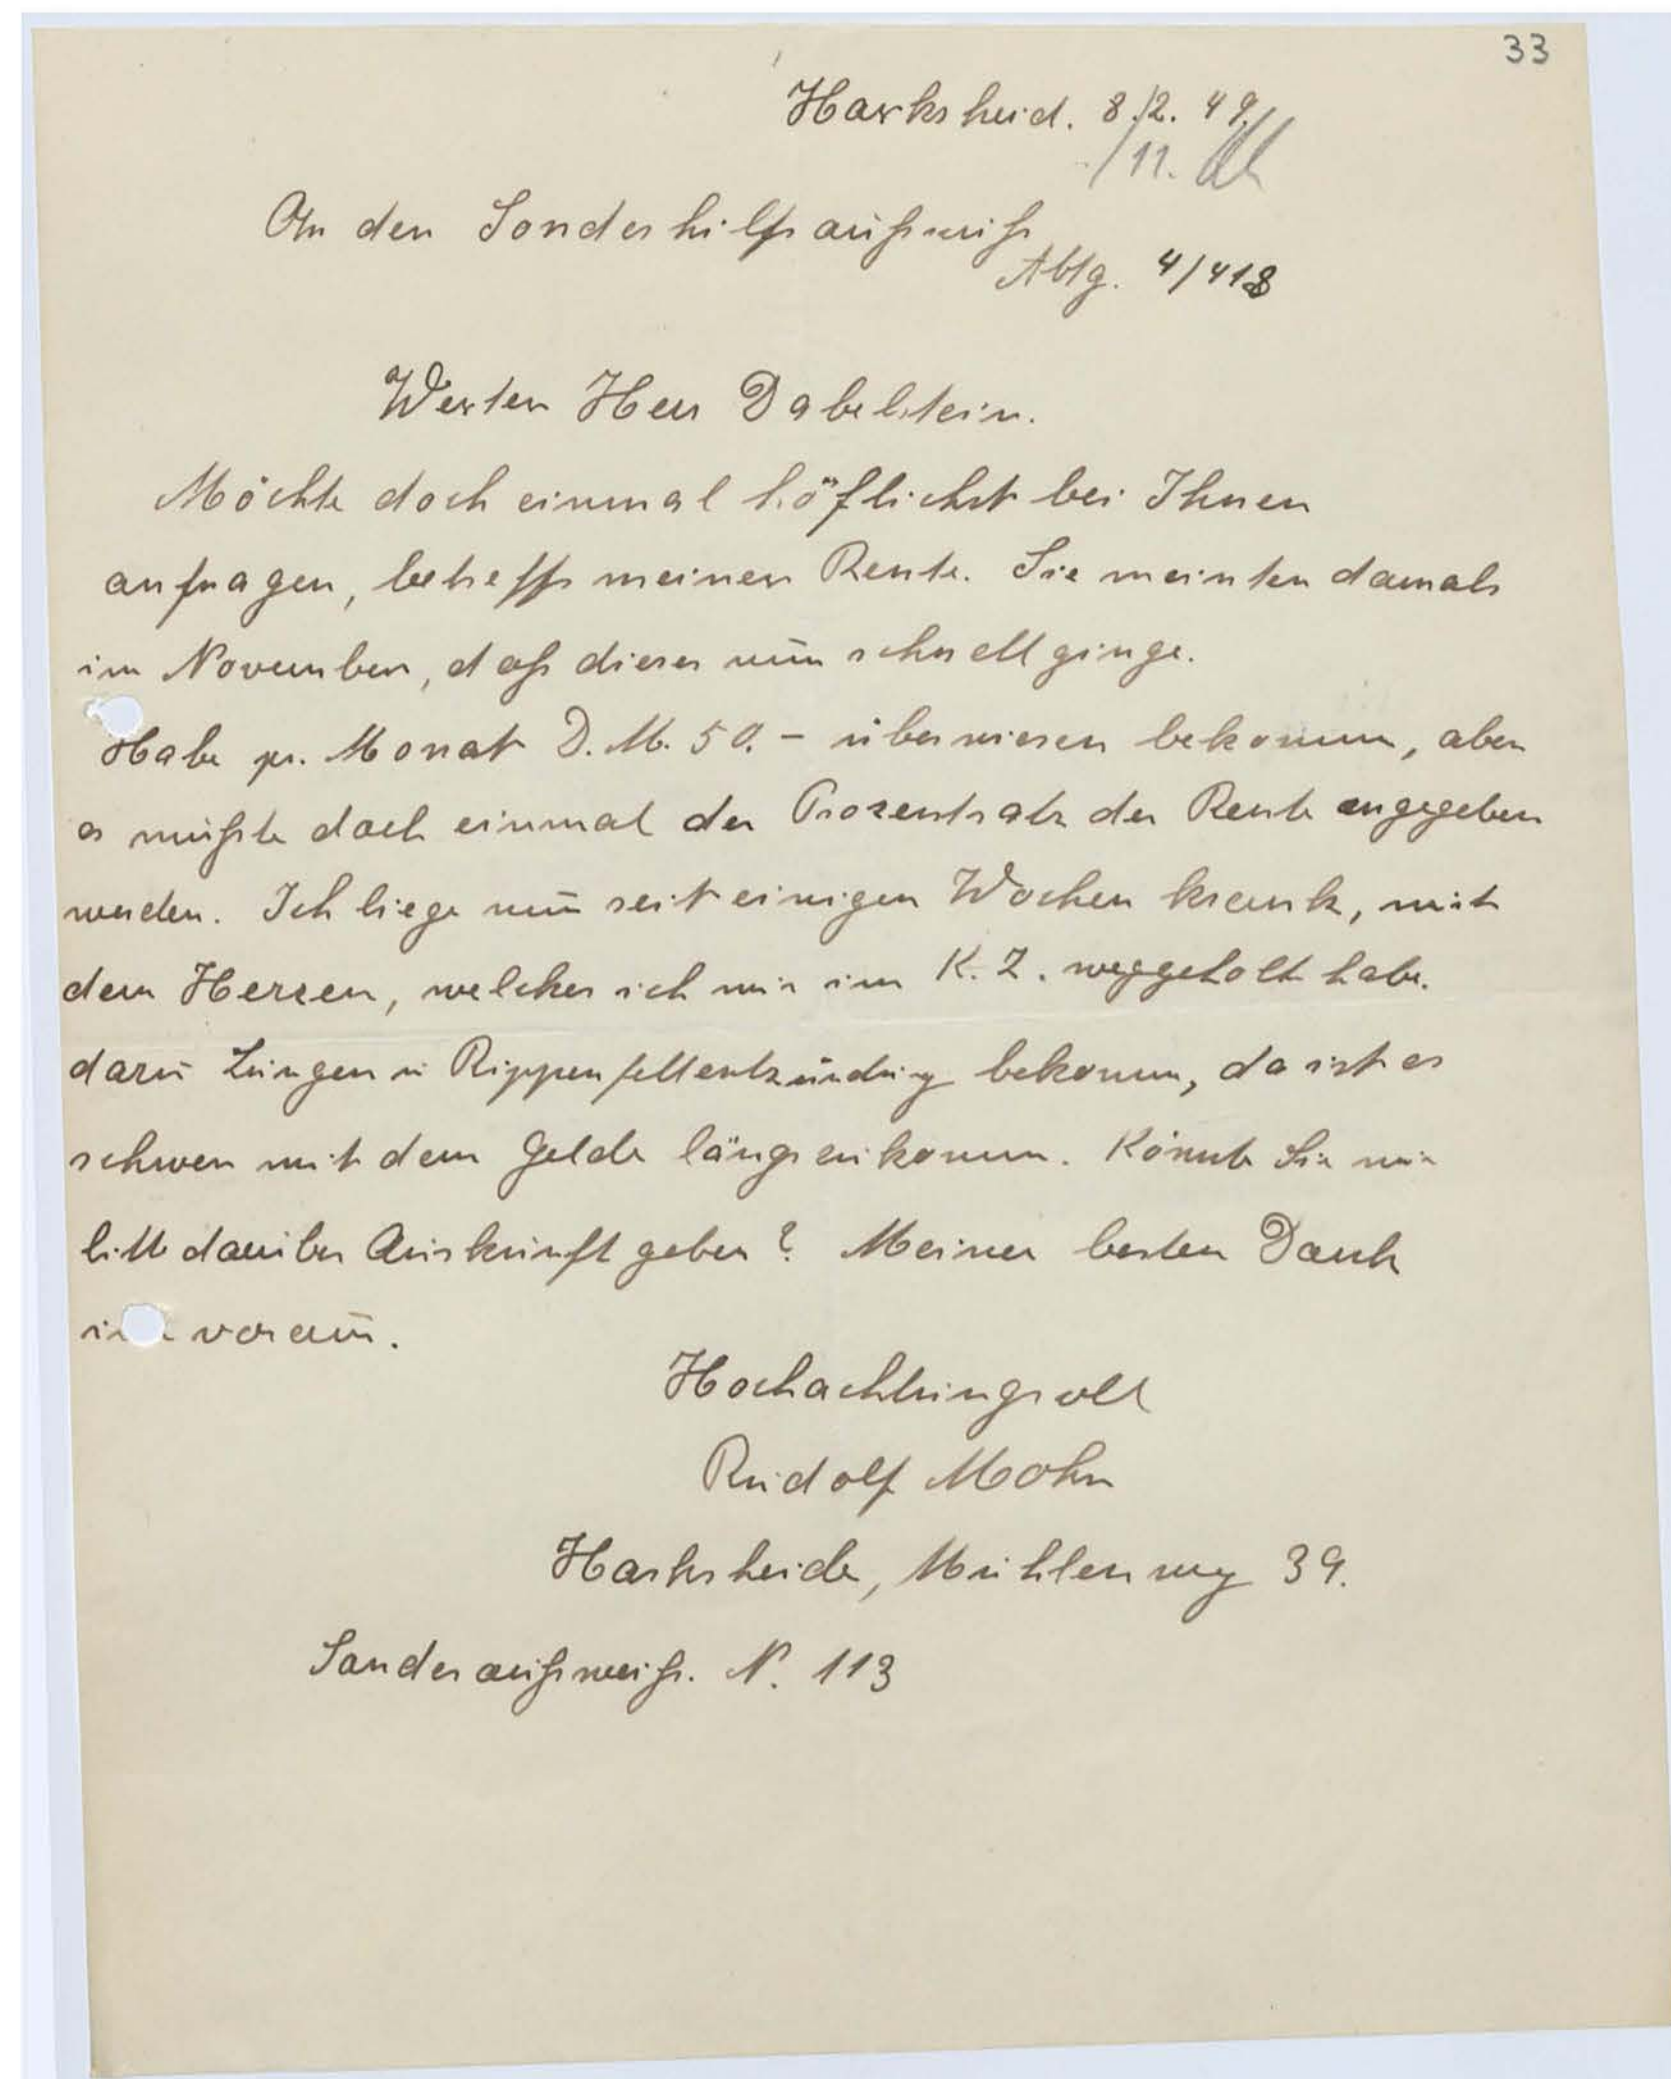 33
Harksheid. 8/2. 49.
/11.
An den Sonderhilfsaußweiß
Abtg. 4/418
Werter Herr Dabelstein.
Möchte doch einmal höflichst bei Ihnen
anfragen, betreffs meiner Rente. Sie meinten damals
im November, daß dieses nun schnell ginge.
Habe pr. Monat D.M. 50.- überwiesen bekomm, aber
es müßte doch einmal der Prozentsatz der Rente angegeben
werden. Ich liege nun seit einigen Wochen krank, mit
dem Herzen, welches ich mir im K.Z. weggeholt habe.
dazu Lungen u Rippenfellentzündung bekomm, da ist es
schwer mit dem Gelde längszukomm. Könnte Sie mir
bitte darüber Auskunft geben? Meinen besten Dank
im voraus.
Hochachtungsvoll
Rudolf Mohn
Harksheide, Mühlenweg 39.
Sonderaußweiß. N. 113